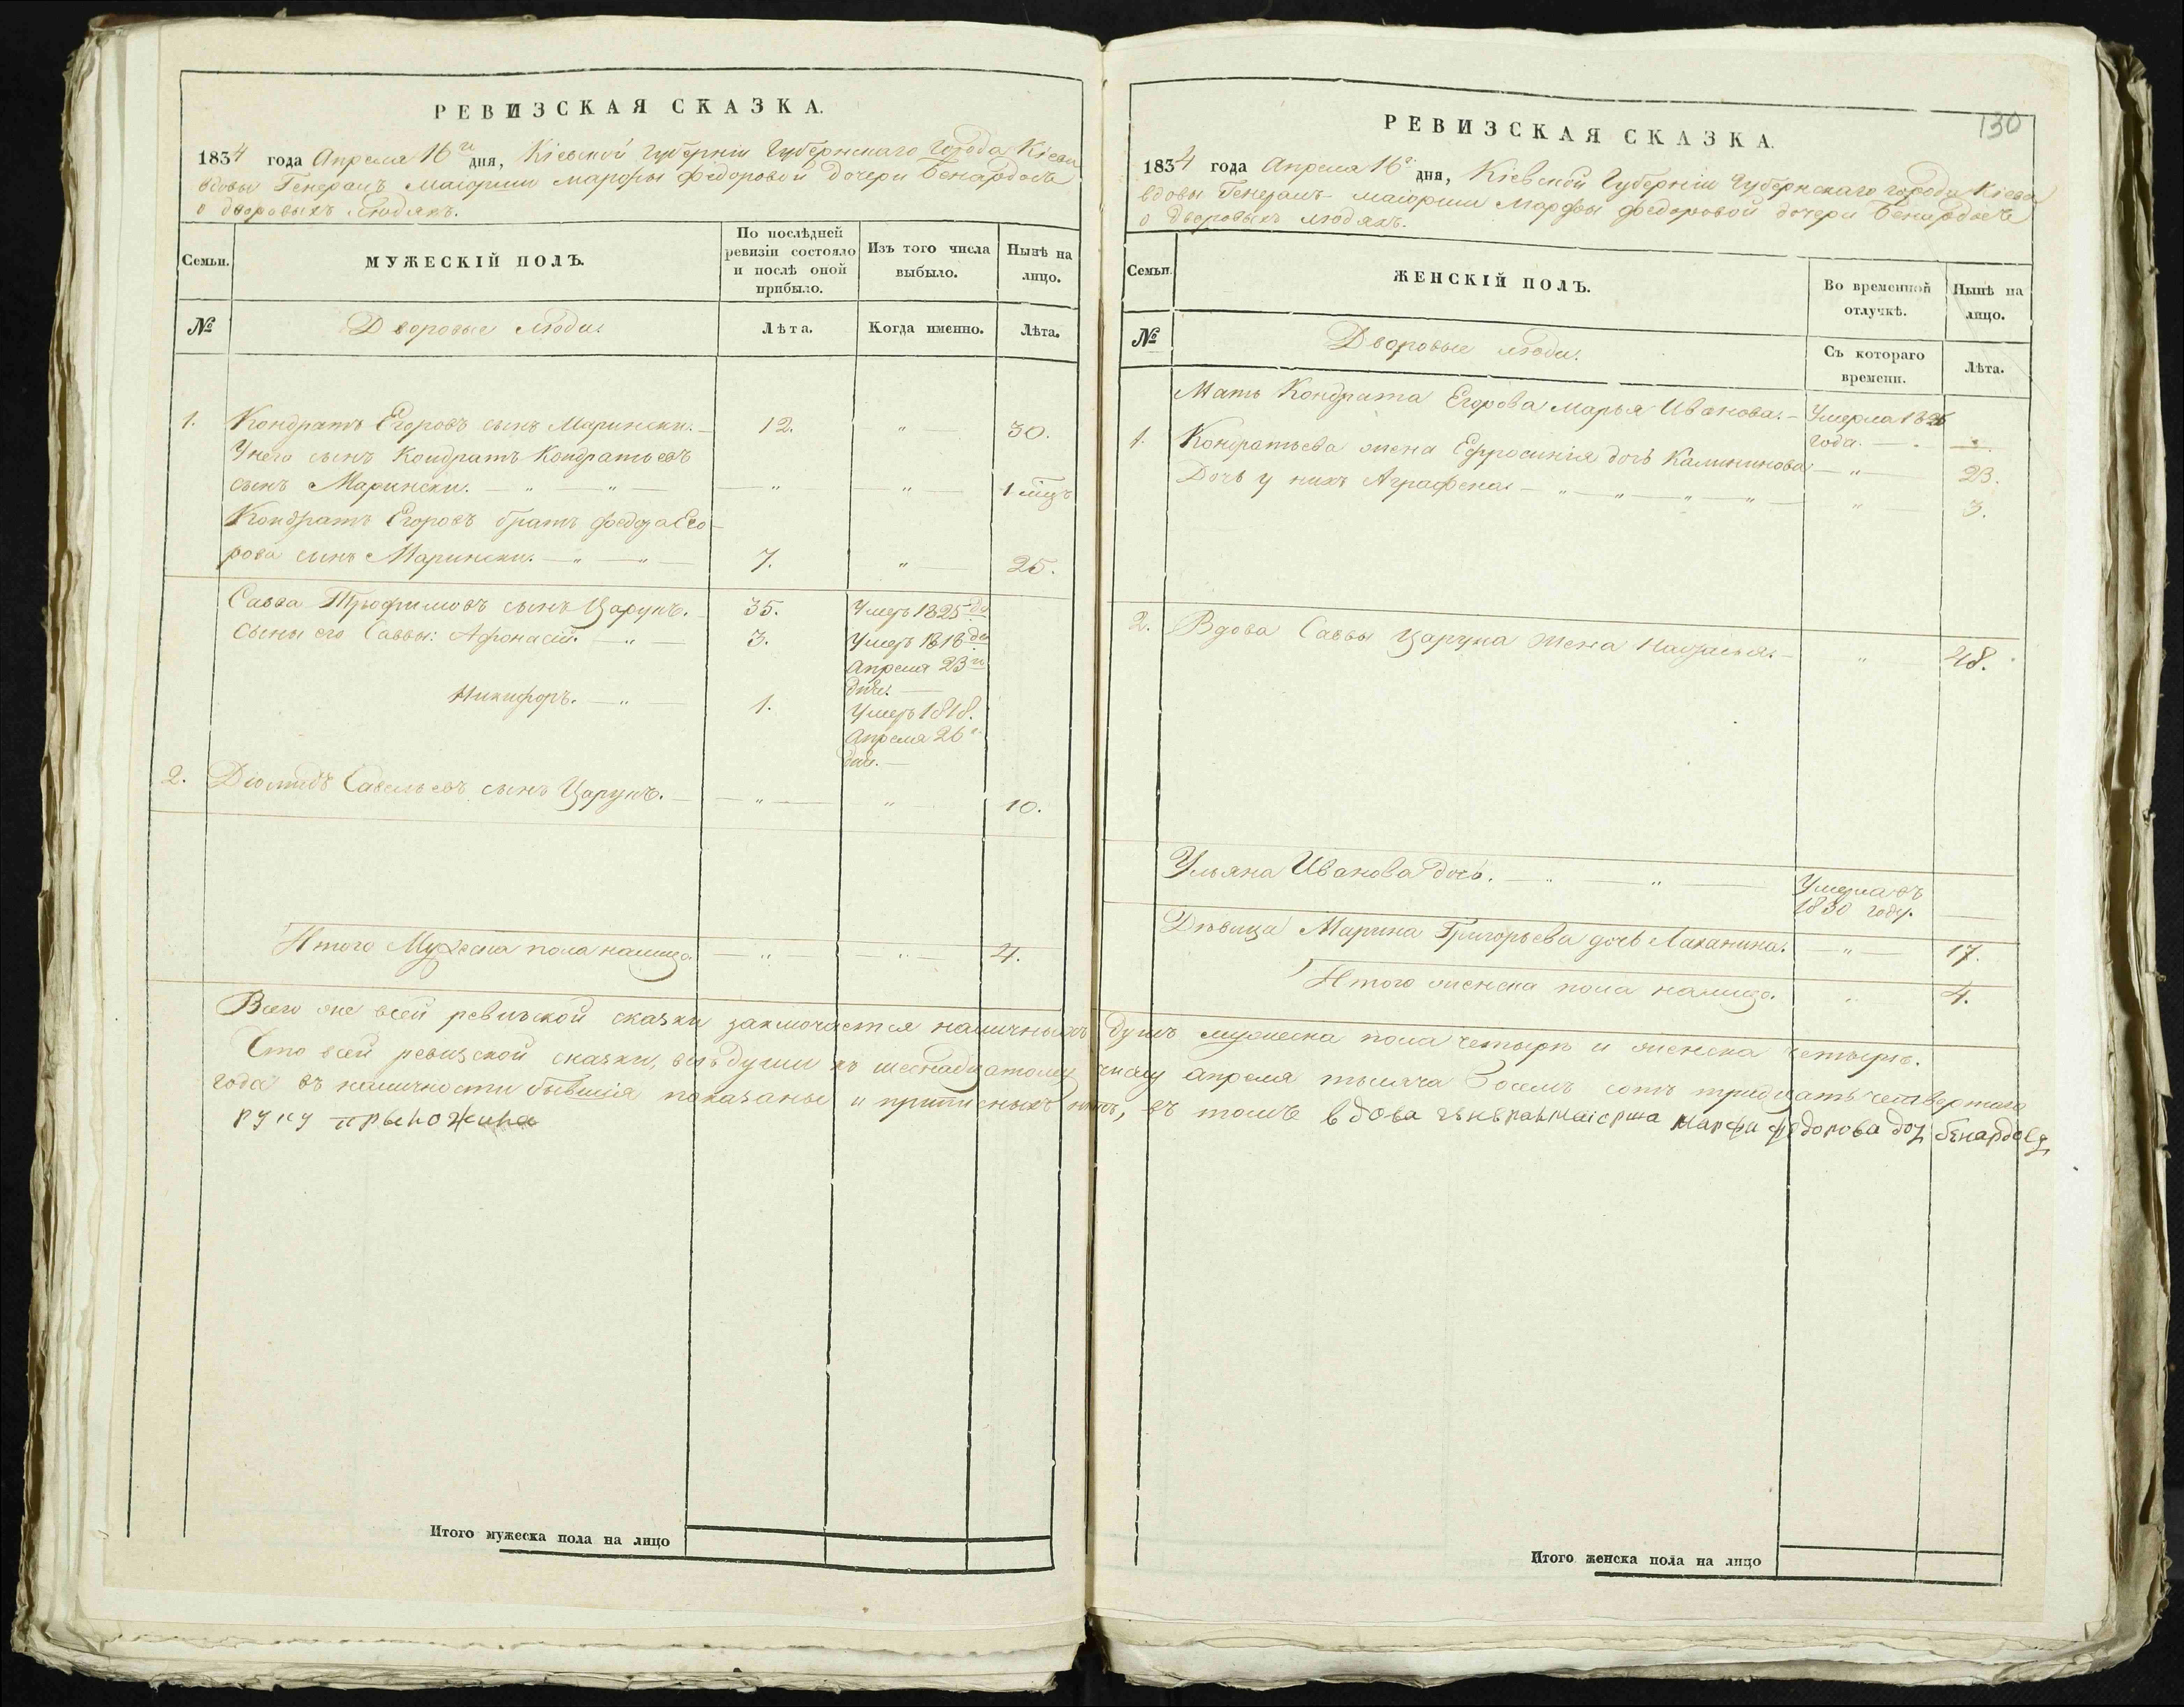 РЕВИЗСКАЯ СКАЗКА.
1834 года Апреля 16го дня, Кіевской Губерніи Губернскаго Города Кіева
вдовы Генералъ маіорши Марѳы Федоровой дочери Бенардосъ
о дворовыхъ людяхъ.
Семьи.
МУЖЕСКІЙ ПОЛЪ.
По послѣдней ревизіи состояло и послѣ оной прибыло.
Изъ того числа выбыло.
Нынѣ на лицо.
№
Дворовые люди.
Лѣта.
Когда именно.
Лѣта.
1. Кондратъ Егоровъ сынъ Марински. — 12. " — 30.
У него сынъ Кондратъ Кондратьевъ
сынъ Марински. — " — " — — " — " — 1 мцъ
Кондратъ Егоровъ братъ Федора Его-
рова сынъ Марински. — " — " — 7. " — 25.
Савва Трофимовъ сынъ Царукъ. 35. Умеръ 1825 го
Сыны его Саввы: Афонасій. — " — 3. Умеръ 1818 го
Апреля 23го
дня. —
Никифоръ. — " — 1. Умеръ 1818.
Апреля 26го
дня. —
2. Діомидъ Савельевъ сынъ Царукъ. — — " — " 10.
Итого Мужеска пола налицо. — " — — " — 4.
Итого мужеска пола на лицо
130
РЕВИЗСКАЯ СКАЗКА.
1834 года Апреля 16го дня, Кіевской Губерніи Губернскаго города Кіева
вдовы Генералъ-маіорши Марфы Федоровой дочери Бенардосъ
о дворовыхъ людяхъ.
Семьи.
ЖЕНСКІЙ ПОЛЪ.
Во временной отлучкѣ.
Нынѣ на лицо.
№
Дворовые люди.
Съ котораго времени.
Лѣта.
Мать Кондрата Егорова Марья Иванова. — Умерла 1826
года. —
1. Кондратьева жена Ефросинія дочь Калининова — " — 23.
Дочь у нихъ Аграфена. — " — " — " — " — " 3.
2. Вдова Саввы Царука жена Наталья. — " 48.
Ульяна Иванова дочь. — " — " — Умерла въ
1830 году. —
Дѣвица Марина Григорьева дочь Лаханина. — " — 17.
Итого женска пола налицо. " 4.
Всего же всей ревизской сказки заключается наличныхъ душъ мужеска пола четыре и женска четыре.
Что всей ревизской сказки, всѣ души къ шеснадцатому числу апреля тысяча восемь сотъ тридцать четвертаго
года въ наличности бывшія показаны и приписныхъ нѣтъ, въ томъ вдова генералмаіорша Марфа Федорова доч Бенардосъ
руку прыложила
Итого женска пола на лицо